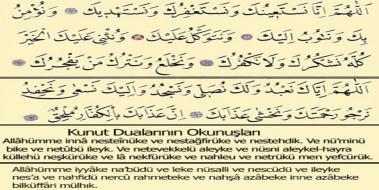 اَللّٰهُمَّ اِنَّا نَسْتَعِينُكَ وَنَسْتَغْفِرُكَ وَنَسْتَهْدِيكَ وَنُؤْمِنُ
بِكَ وَنَتُوبُ اِلَيْكَ وَنَتَوَكَّلُ عَلَيْكَ وَنُثْنِى عَلَيْكَ الْخَيْرَ
كُلَّهُ نَشْكُرُكَ وَلَا نَكْفُرُكَ وَنَخْلَعُ وَنَتْرُكُ مَنْ يَفْجُرُكَ
اَللّٰهُمَّ اِيَّاكَ نَعْبُدُ وَلَكَ نُصَلِّى وَنَسْجُدُ وَاِلَيْكَ نَسْعٰى وَنَحْفِدُ
نَرْجُو رَحْمَتَكَ وَنَخْشٰى عَذَابَكَ اِنَّ عَذَابَكَ بِالْكُفَّارِ مُلْحِقٌ
Kunut Dualarının Okunuşları
Allâhümme innâ nesteînüke ve nestağfirüke ve nestehdik. Ve nü'minü
bike ve netûbü ileyk. Ve netevekkelü aleyke ve nüsni aleykel-hayra
küllehü neşkürüke ve lâ nekfürüke ve nahleu ve netrükü men yefcürük.
Allâhümme iyyâke na'büdü ve leke nüsalli ve nescüdü ve ileyke
nes'a ve nahfidü nercû rahmeteke ve nahşâ azâbeke inne azâbeke
bilküffâri mülhik.